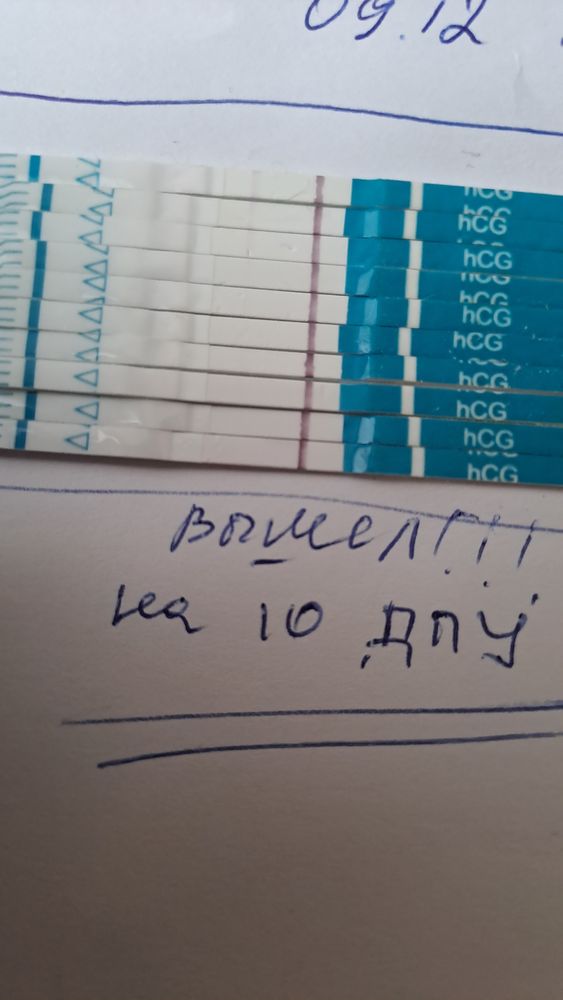 09.12
hCG
hCG
hCG
hCG
hCG
hCG
hCG
hCG
hCG
hCG
hCG
Вышел!!!
на 10 ДПУ